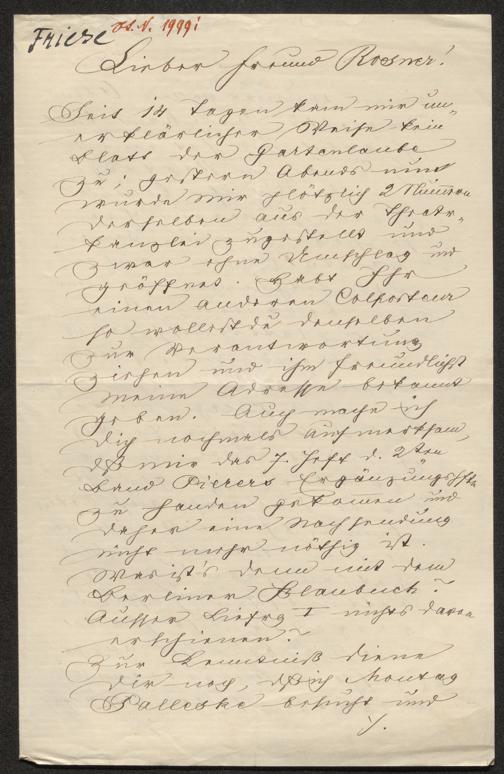 Friese
O.L.N. 1999i
Lieber Freund Rosner!
Seit 14 Tagen kam mir un-
erklärlicher Weise kein
Blatt der Gartenlaube
zu; gestern Abends nun
wurde mir plötzlich 2 Numern
derselben aus der Theatr-
kanzlei zugestellt und
zwar ohne Umschlag und
geöffnet. Habt Ihr
einen anderen Colporteur
so wollest du denselben
zur Verantwortung
ziehen und ihm freundlichst
meine Adresse bekannt
geben. Auch mache ich
dich nochmals aufmerksam,
dß mir das 7. Heft d. 2ten
Band Pierers Ergänzungshfte
zu Handen gekomen und
daher eine Nachsendung
nicht mehr nöthig ist.
Was ist's denn mit dem
Berliner Blaubuch?
Ausser Liefrg I nichts davon
erschienen?
Zur Kenntniß diene
dir noch, dß ich Montag
Palleske besucht und
./.